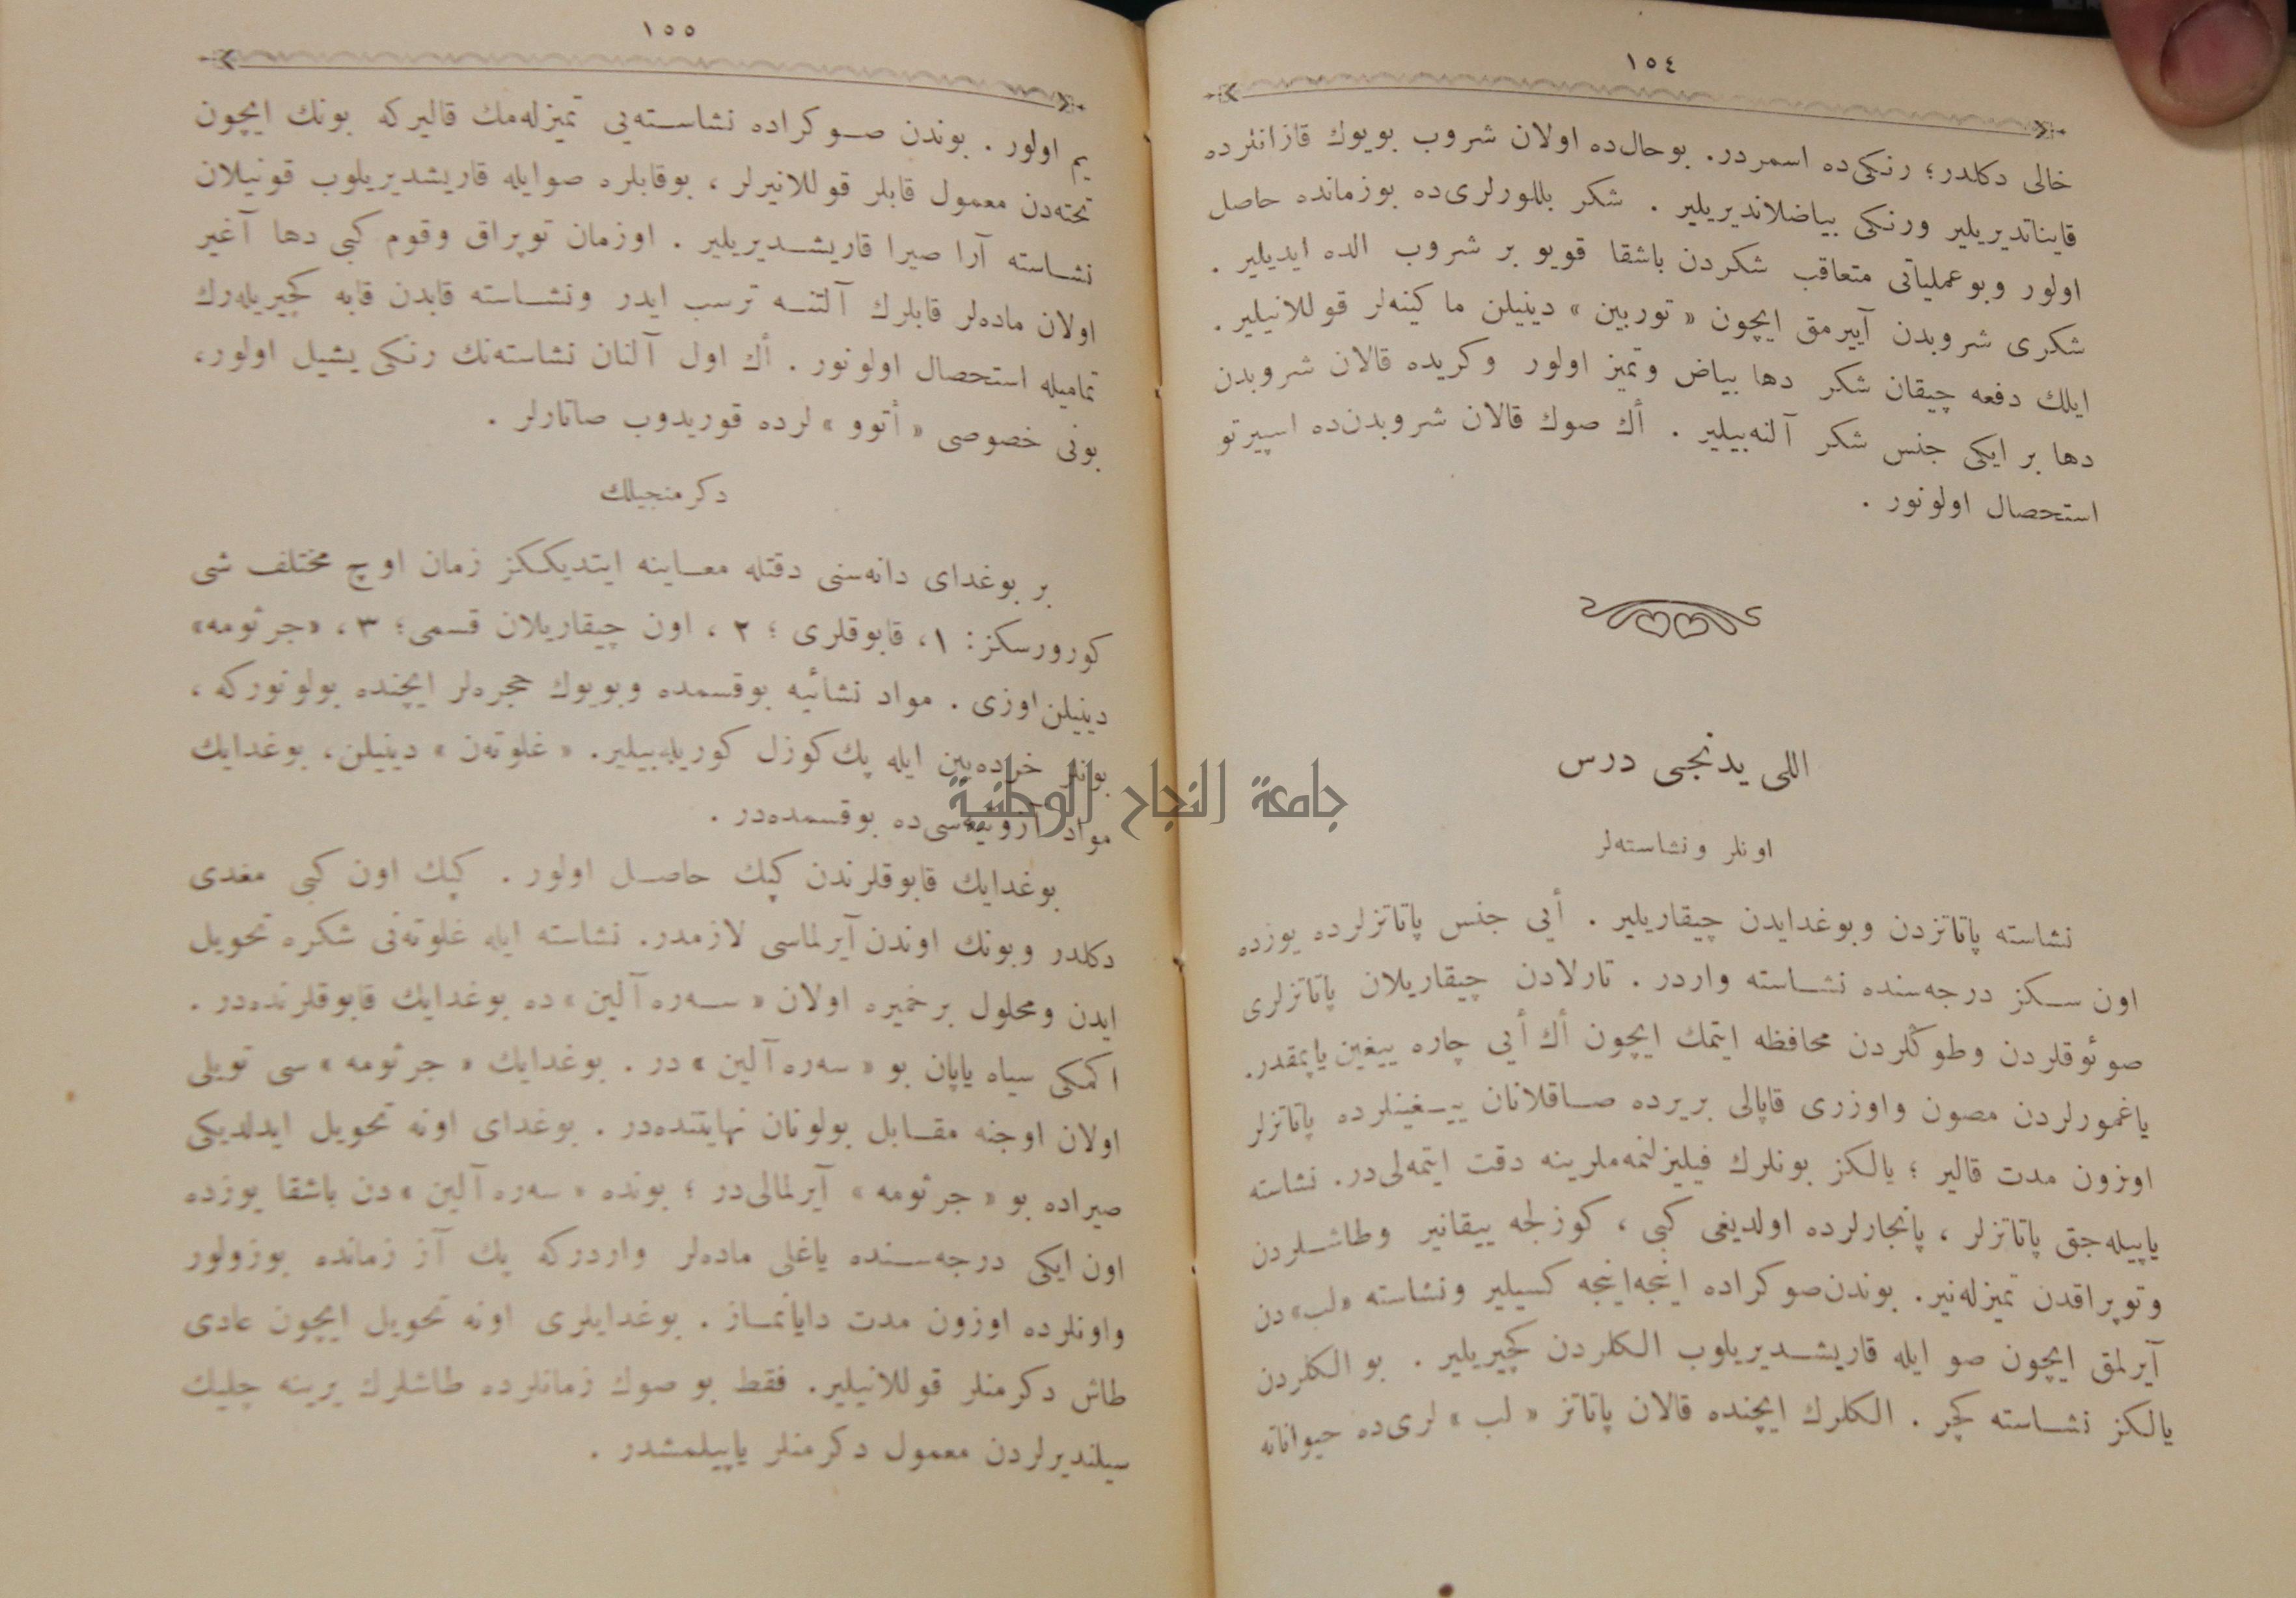 ١٥٤
خالی دكلدر؛ رنكی‌ده اسمردر. بوحال‌ده اولان شروب بویوك قازانلرده
قایناتدیریلیر ورنكی بیاضلاندیریلیر . شكر بللورلری‌ده بوزمانده حاصل
اولور وبوعملیاتی متعاقب شكردن باشقا قویو بر شروب الده ایدیلیر .
شكری شروبدن آییرمق ایچون « توربین » دینیلن ماكینه‌لر قوللانیلیر.
ایلك دفعه چیقان شكر دها بیاض وتمیز اولور وكریده قالان شروبدن
دها بر ایكی جنس شكر آلنه‌بیلیر . أك صوك قالان شروبدن‌ده اسپیرتو
استحصال اولونور .
اللی یدنجی درس
اونلر ونشاسته‌لر
نشاسته پاتاتزدن وبوغدایدن چیقاریلیر . أیی جنس پاتاتزلرده یوزده
اون سكز درجه‌سنده نشاسته واردر . تارلادن چیقاریلان پاتاتزلری
صوئوقلردن وطوڭلردن محافظه ایتمك ایچون أك أیی چاره ییغین یاپمقدر.
یاغمورلردن مصون واوزری قاپالی بریرده صاقلانان ییغینلرده پاتاتزلر
اوزون مدت قالیر ؛ یالكز بونلرك فیلیزلنمه‌ملرینه دقت ایتمه‌لی‌در. نشاسته
یاپیله‌جق پاتاتزلر ، پانجارلرده اولدیغی كبی ، كوزلجه ییقانیر وطاشلردن
وتوپراقدن تمیزله‌نیر. بوندن‌صوكراده اینجه‌اینجه كسیلیر ونشاسته «لب» دن
آیرلمق ایچون صو ایله قاریشدیریلوب الكلردن كچیریلیر . بو الكلردن
یالكز نشاسته كچر . الكلرك ایچنده قالان پاتاتز « لب » لری‌ده حیواناته
١٥٥
یم اولور . بوندن صوكراده نشاسته‌یی تمیزله‌مك قالیركه بونك ایچون
تخته‌دن معمول قابلر قوللانیرلر ، بوقابلره صوایله قاریشدیریلوب قونیلان
نشاسته آرا صیرا قاریشدیریلیر . اوزمان توپراق وقوم كبی دها آغیر
اولان ماده‌لر قابلرك آلتنه ترسب ایدر ونشاسته قابدن قابه كچیریله‌رك
تمامیله استحصال اولونور . أك اول آلنان نشاسته‌نك رنكی یشیل اولور،
بونی خصوصی « أتوو » لرده قوریدوب صاتارلر .
دكرمنجیلك
بر بوغدای دانه‌سنی دقتله معاینه ایتدیككز زمان اوچ مختلف شی
كورورسكز: ١، قابوقلری ؛ ٢ ، اون چیقاریلان قسمی؛ ٣ ، «جرثومه»
دینیلن اوزی . مواد نشائیه بوقسمده وبویوك حجره‌لر ایچنده بولونوركه ،
بونلر خرده‌بین ایله پك كوزل كوریله‌بیلیر. « غلوته‌ن » دینیلن، بوغدایك
مواد آزوتیه‌سی‌ده بوقسمده‌در .
بوغدایك قابوقلرندن كپك حاصل اولور . كپك اون كبی مغدی
دكلدر وبونك اوندن آیرلماسی لازمدر. نشاسته ایله غلوته‌نی شكره تحویل
ایدن ومحلول برخمیره اولان « سه‌ره‌آلین » ده بوغدایك قابوقلرنده‌در .
اكمكی سیاه یاپان بو « سه‌ره‌آلین » در . بوغدایك « جرثومه » سی تویلی
اولان اوجنه مقابل بولونان نهایتنده‌در . بوغدای اونه تحویل ایدلدیكی
صیراده بو « جرثومه » آیرلمالی‌در ؛ بونده « سه‌ره‌آلین » دن باشقا یوزده
اون ایكی درجه‌سنده یاغلی ماده‌لر واردركه پك آز زمانده بوزولور
واونلرده اوزون مدت دایانماز . بوغدایلری اونه تحویل ایچون عادی
طاش دكرمنلر قوللانیلیر. فقط بو صوك زمانلرده طاشلرك یرینه چلیك
سیلندیرلردن معمول دكرمنلر یاپیلمشدر .
جامعة النجاح الوطنية